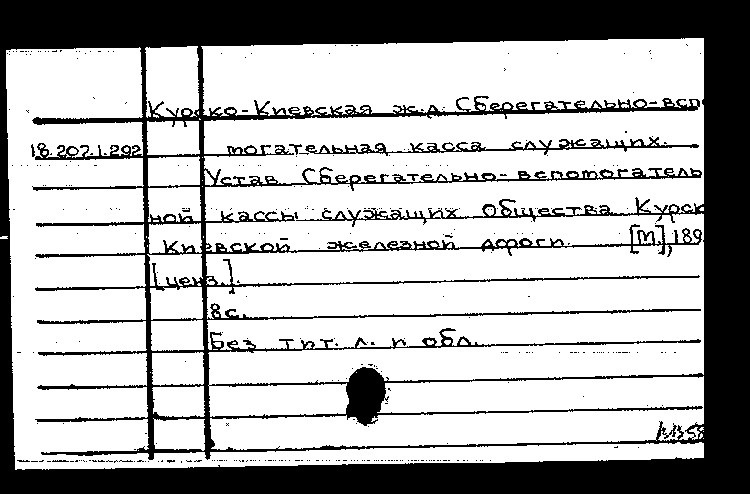 Курско-Киевская ж.д. Сберегательно-вспо
18.207.1.292 могательная касса служащих.
Устав Сберегательно-вспомогатель
ной кассы служащих Общества Курск
Киевской железной дороги. [М], 189
[ценз.].
8с.
Без тит. л. и обл.